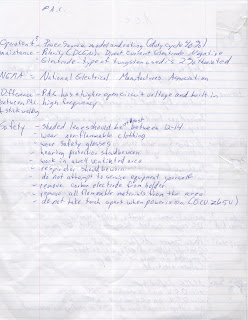 P.A.C.
Operational - Power Source, model and rating (duty cycle %)
maintenance - Polarity (DCEN) Direct Current Electrode Negative
Electrode - type of tungsten used is 2% thoriated
NEMA = National Electrical Manufactures Association
Difference - PAC has a higher open circuit voltage and built in
between PAC high frequency
& stick welding
Safety - Shaded lens should be between 12-14
- wear non flammable clothing
- wear safety glasses
- hearing protection should be worn
- work in a well ventilated area
- respirator should be worn
- do not attempt to service equipment yourself
- remove carbon electrode from holder
- remove all flammable materials from the area
- do not take torch apart when power is on (OCV